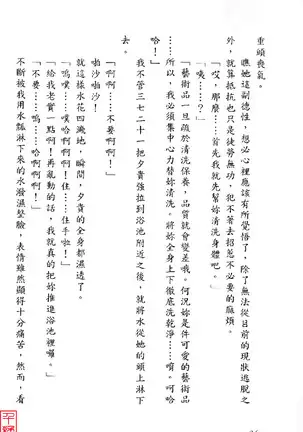 垂頭喪氣。
瞧她這副德性，想必心裡應該有所覺悟了，除了無法從目前的現狀逃脫之
外，就算抵抗也只是徒勞無功，犯不著去招惹不必要的麻煩。
「哎，那麼……首先我就先幫妳清洗身體吧。」
「咦……？」
「藝術品一旦疏於清洗保養，品質就會變差哦。何況妳是件可愛的藝術品
……所以，我必須集中心力替妳清洗。將妳全身上下徹底洗乾淨……唷。呵哈
哈！」
我不管三七二十一把夕貴強拉到浴池附近之後，就將水從她的頭上淋下
去。
「啊啊……不要啊啊！」
啪沙啪沙！
就這樣水花四濺地，瞬間，夕貴的全部都濕透了。
「嗚噗……噗哈啊啊！住……住手啦！」
「給我老實一點啊！再亂動的話，我就真的把妳推進浴池裡囉。」
「不要……嗚……哈啊啊！」
不斷被我用水瓢淋下來的水潑濕整臉，表情雖然顯得十分痛苦，然而，看